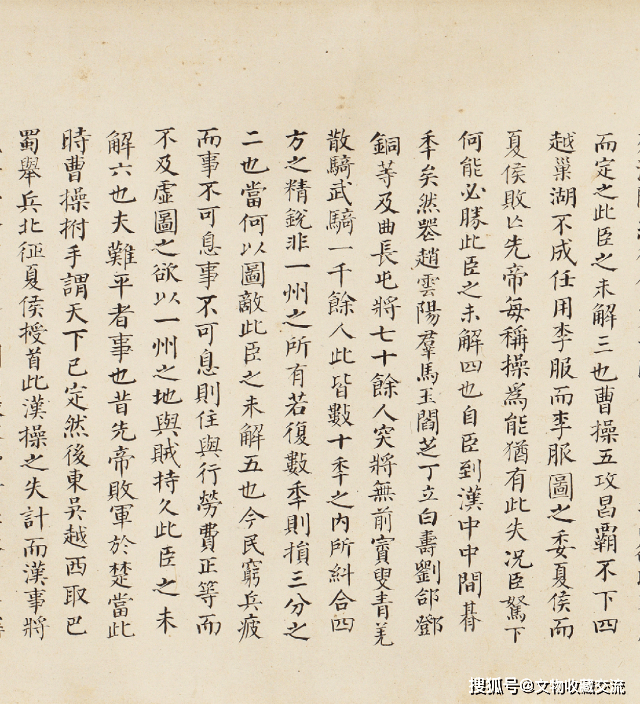 而定之此臣之未解三也曹操五攻昌霸不下四
越巢湖不成任用李服而李服圖之委夏侯而
夏侯敗亡先帝每稱操爲能猶有此失况臣駑下
何能必勝此臣之未解四也自臣到漢中中間朞
秊矣然喪趙雲陽羣馬玉閻芝丁立白壽劉郃鄧
銅等及曲長屯將七十餘人突將無前賨叟青羌
散騎武騎一千餘人此皆數十秊之内所糾合四
方之精銳非一州之所有若復數秊則損三分之
二也當何以圖敵此臣之未解五也今民窮兵疲
而事不可息事不可息則住與行勞費正等而
不及虛圖之欲以一州之地與賊持久此臣之未
解六也夫難平者事也昔先帝敗軍於楚當此
時曹操拊手謂天下已定然後東吳越西取巴
蜀舉兵北征夏侯授首此漢操之失計而漢事將
搜狐号@文物收藏交流